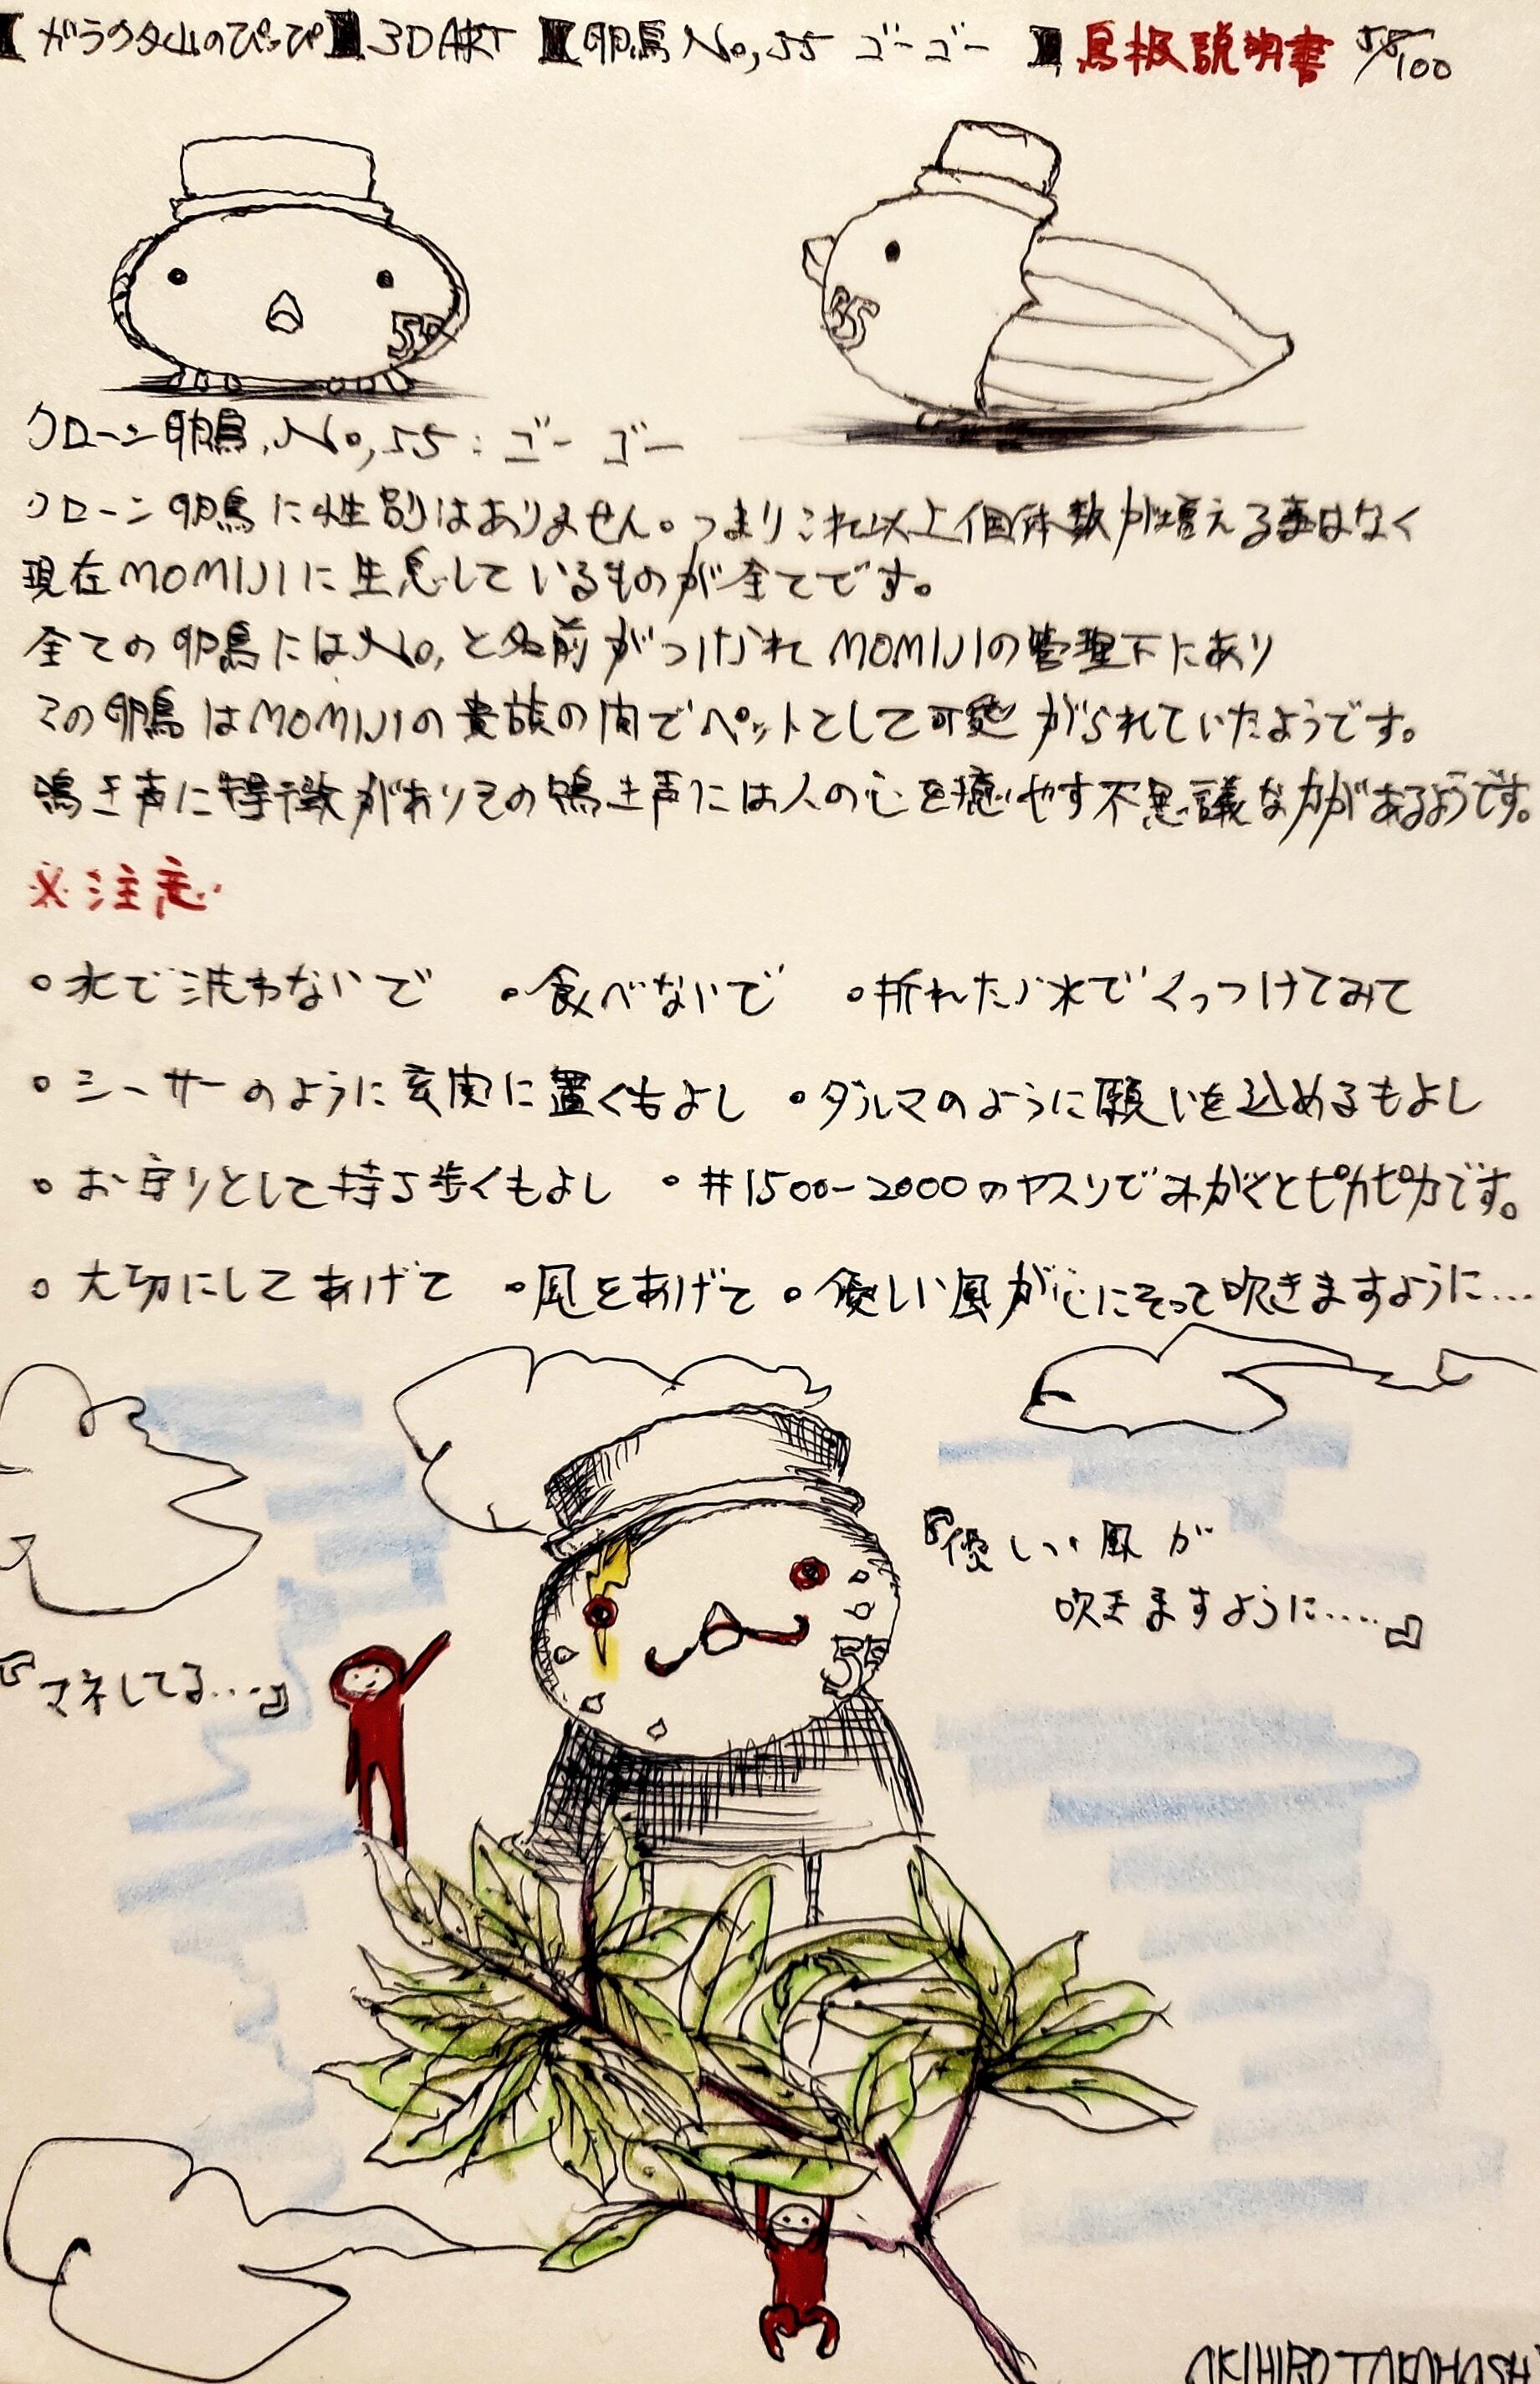 【ガラクタ山のぴっぴ】3D ART 【卵鳥 No,55 ゴーゴー 】鳥扱説明書 55/100
55
55
クローン卵鳥.No,55:ゴーゴー
クローン卵鳥に性別はありません。つまりこれ以上個体数が増える事はなく
現在MOMIJIに生息しているものが全てです。
全ての卵鳥にはNo,と名前がつけられMOMIJIの管理下にあり
この卵鳥はMOMIJIの貴族の間でペットとして可愛がられていたようです。
鳴き声に特徴がありその鳴き声には人の心を癒やす不思議な力があるようです。
※注意
・水で洗わないで ・食べないで ・折れたら水でくっつけてみて
・シーサーのように玄関に置くもよし ・ダルマのように願いを込めるもよし
・お守りとして持ち歩くもよし ・#1500-2000のヤスリでみがくとピカピカです。
・大切にしてあげて ・風をあげて ・優しい風が心にそって吹きますように…
『優しい風が
吹きますように....』
55
『マネしてる...』
AKIHIRO TAKAHASHI